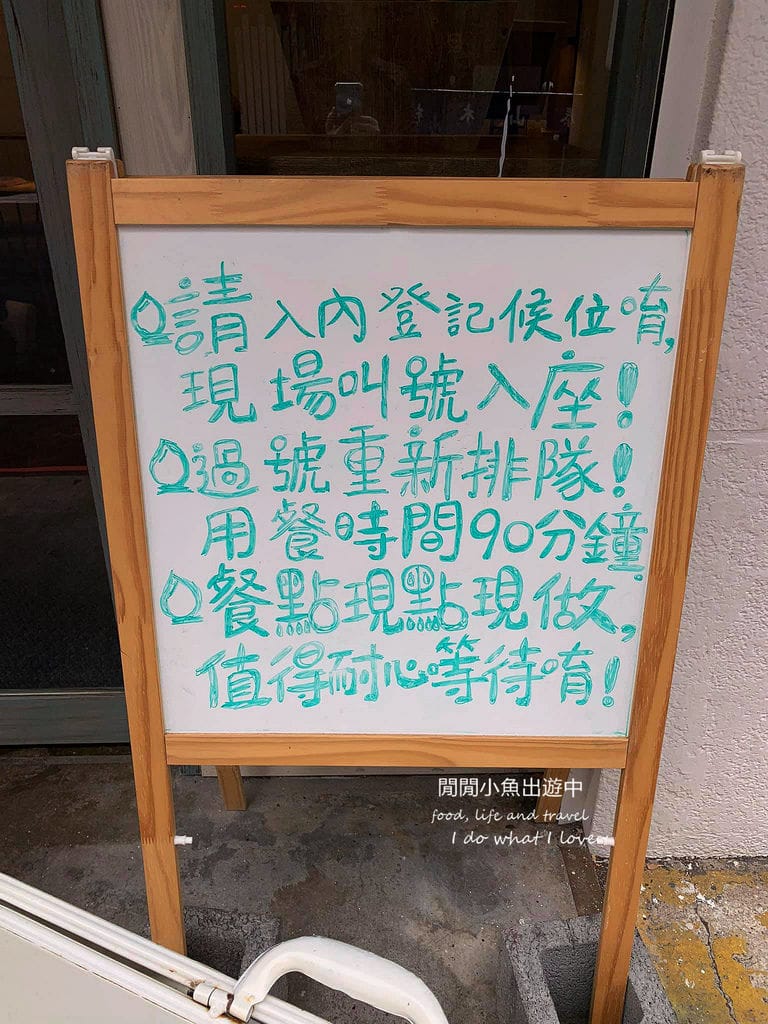 請入內登記候位唷,
現場叫號入座!
過號重新排隊!
用餐時間90分鐘.
餐點現點現做,
值得耐心等待唷!
閒閒小魚出遊中
food, life and travel
I do what I love